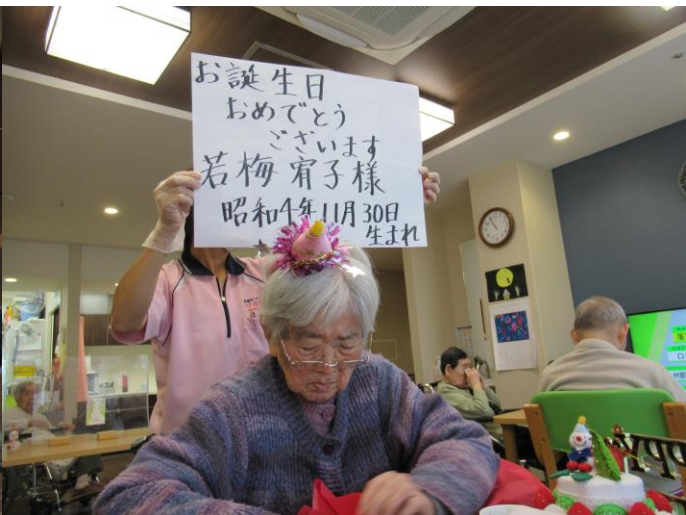 お誕生日
おめでとう
ございます
若梅宥子様
昭和4年11月30日
生まれ